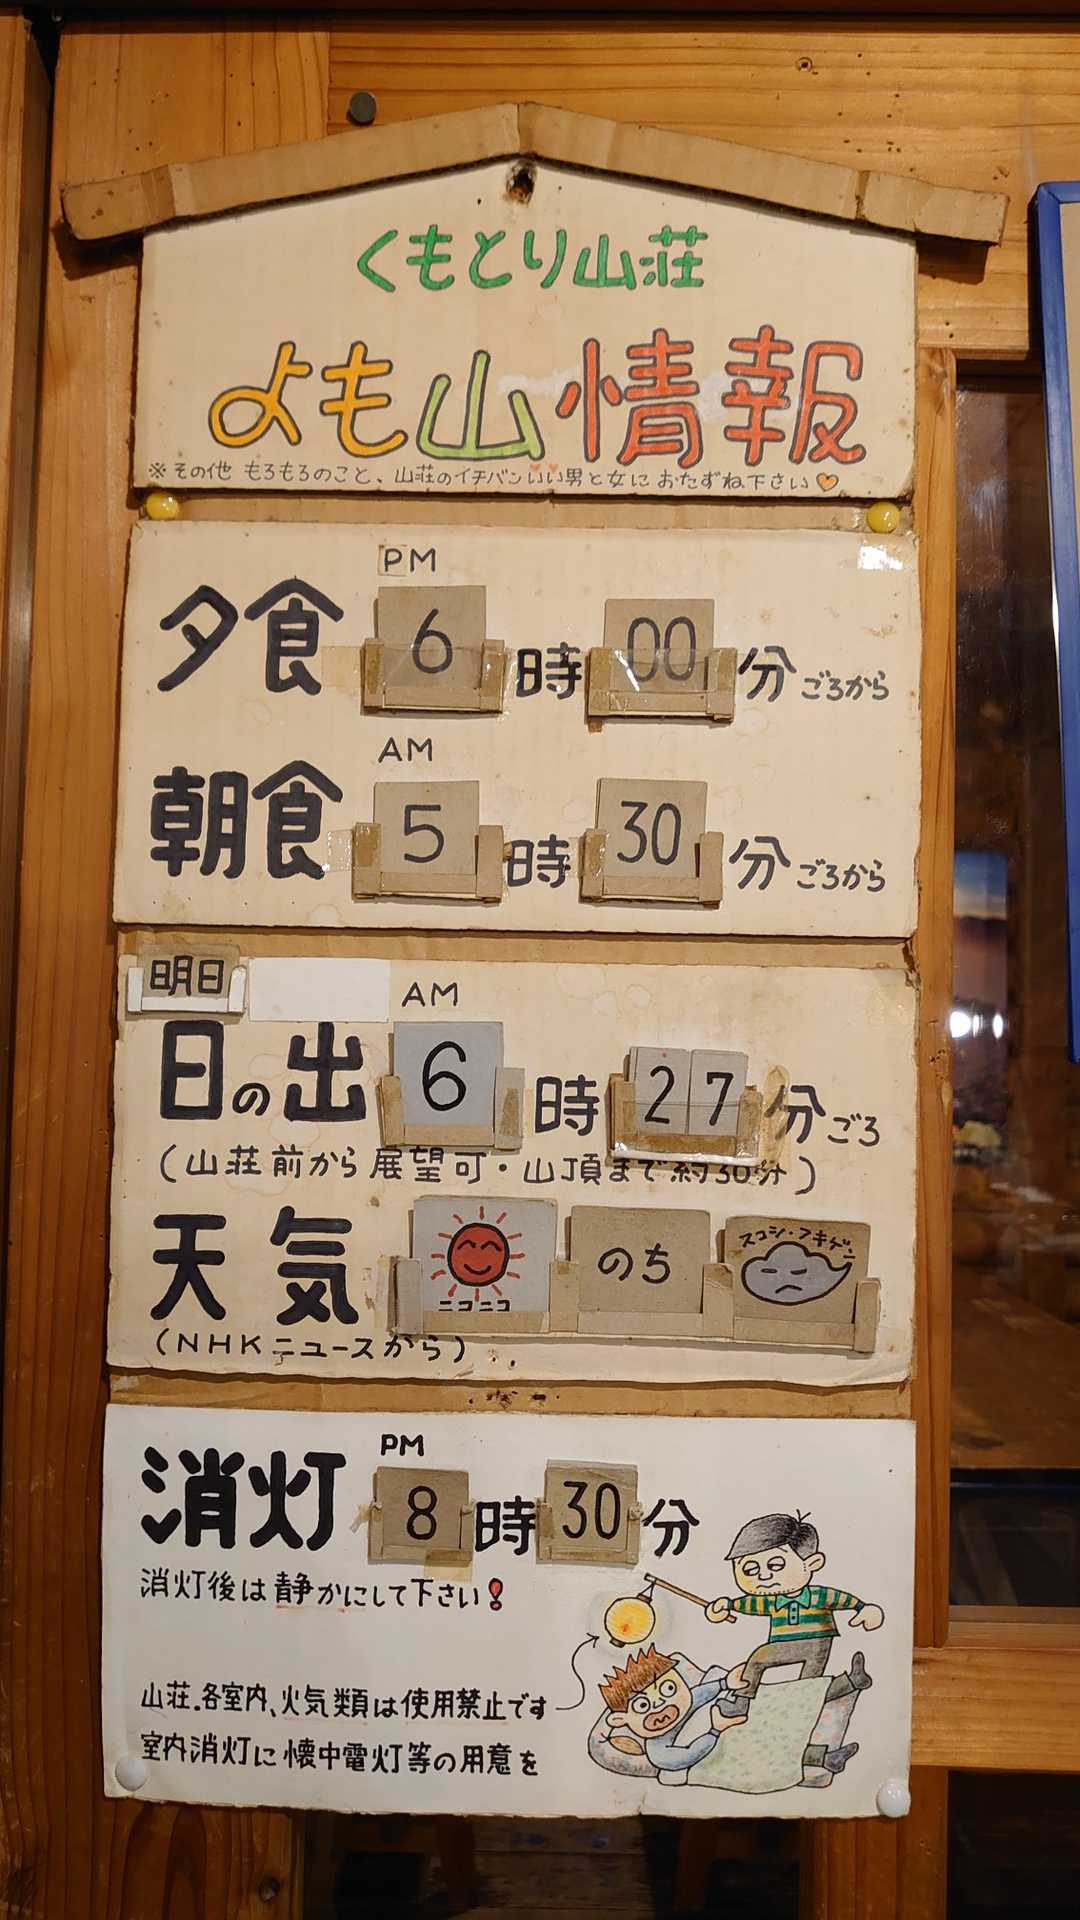 くもとり山荘
よも山情報
※その他 もろもろのこと、山荘のイチバンいい男と女におたずね下さい♡
PM
夕食 6時00分ごろから
AM
朝食 5時30分ごろから
明日
AM
日の出 6時27分ごろ
(山荘前から展望可・山頂まで約30分)
天気 ニコニコ のち スコシ・フキゲン
(NHKニュースから)
PM
消灯 8時30分
消灯後は静かにして下さい!
山荘.各室内、火気類は使用禁止です
室内消灯に懐中電灯等の用意を